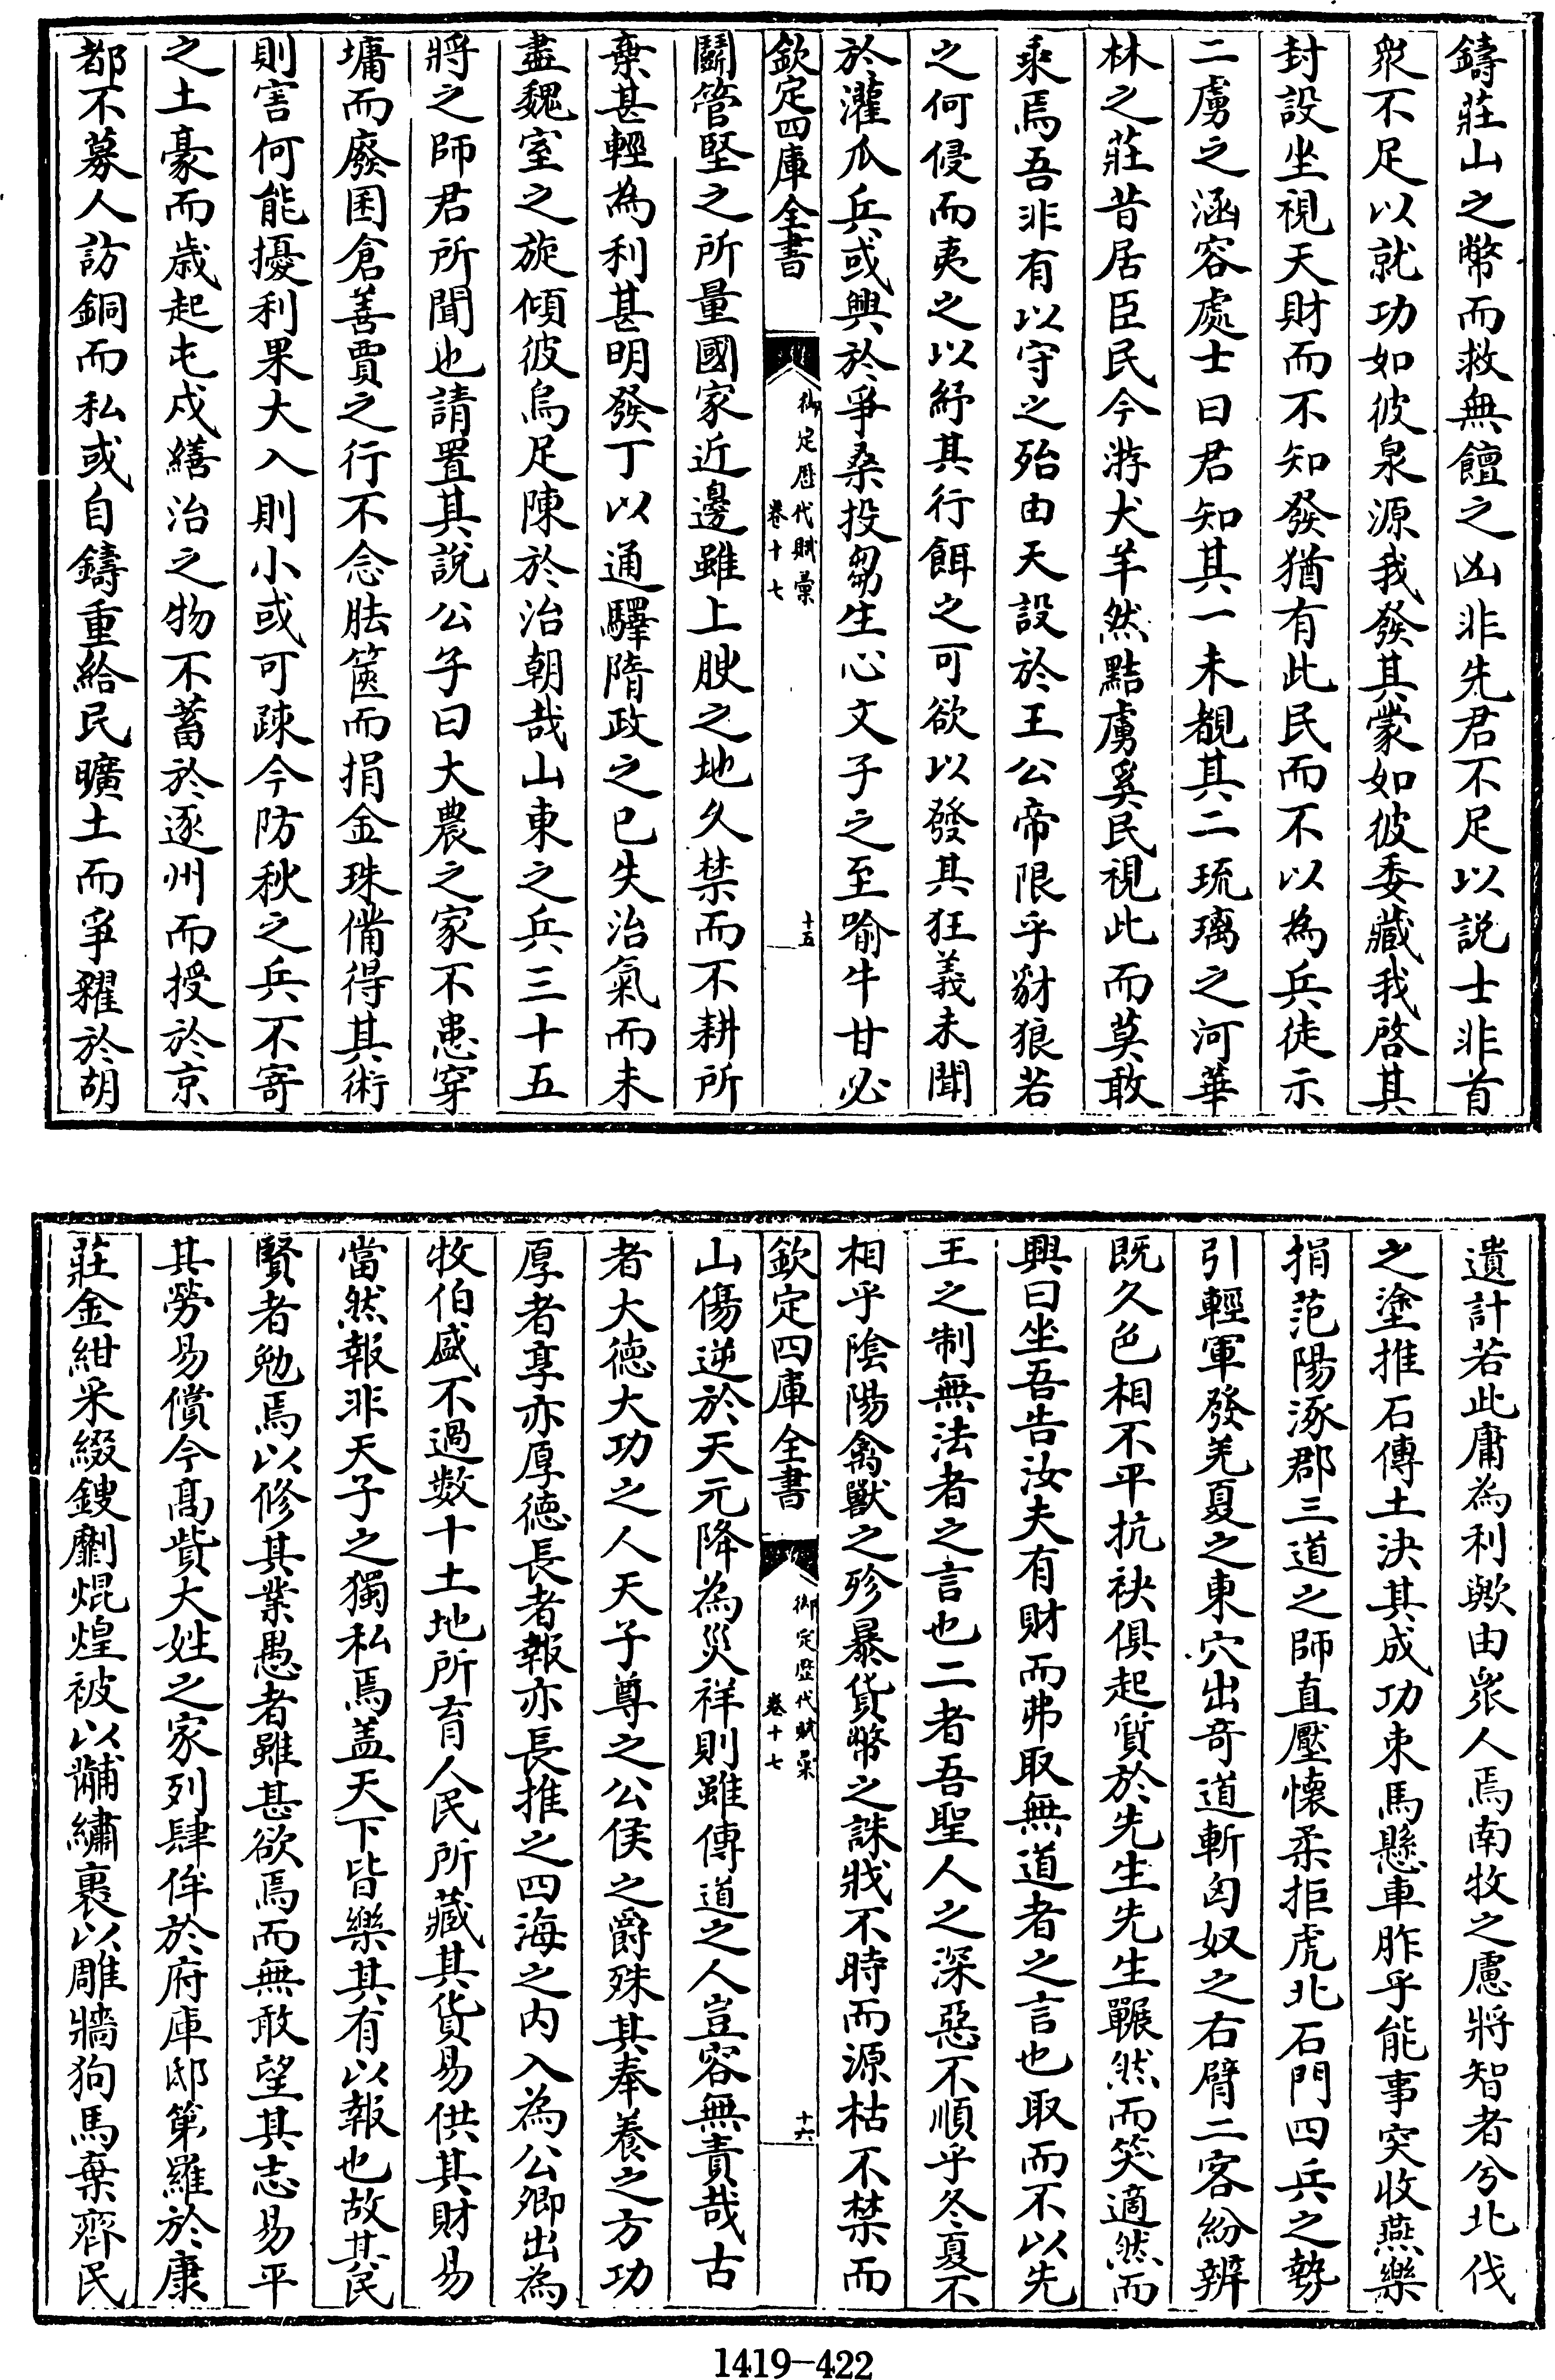 鑄莊山之幣而救無饘之凶非先君不足以説士非首
衆不足以就功如彼泉源我發其蒙如彼委藏我啓其
封設坐視天財而不知發猶有此民而不以為兵徒示
二虜之涵容處士曰君知其一未覩其二琉璃之河華
林之莊昔居臣民今游犬羊然黠虜奚民視此而莫敢
乘焉吾非有以守之殆由天設於王公帝限乎豺狼若
之何侵而夷之以紓其行餌之可欲以發其狂義未聞
於灌瓜兵或興於爭桑投芻生心文子之至喻牛甘必
欽定四庫全書
御定歴代賦彙
卷十七
十五
鬬管堅之所量國家近邊雖上腴之地久禁而不耕所
棄甚輕為利甚明發丁以通驛隋政之已失治氣而未
盡魏室之旋傾彼烏足陳於治朝哉山東之兵三十五
將之師君所聞也請置其說公子曰大農之家不患穿
墉而廢囷倉善賈之行不念胠篋而捐金珠備得其術
則害何能擾利果大入則小或可疎今防秋之兵不寄
之土豪而歳起屯戍繕治之物不蓄於逐州而授於京
都不募人訪銅而私或自鑄重給民曠土而爭糴於胡
遺計若此庸為利歟由衆人焉南牧之慮將智者兮北伐
之塗推石傳土決其成功束馬懸車胙乎能事突收燕樂
捐范陽涿郡三道之師直壓懷柔拒虎北石門四兵之勢
引輕軍發羌夏之東穴出奇道斬匈奴之右臂二客紛辨
既久色相不平抗袂俱起質於先生先生囅然而笑適然而
興曰坐吾告汝夫有財而弗取無道者之言也取而不以先
王之制無法者之言也二者吾聖人之深惡不順乎冬夏不
相乎陰陽禽獸之殄暴貨幣之誅戕不時而源枯不禁而
欽定四庫全書
御定歴代賦彙
卷十七
十六
山傷逆於天元降為災祥則雖傳道之人豈容無責哉古
者大德大功之人天子尊之公侯之爵殊其奉養之方功
厚者享亦厚德長者報亦長推之四海之内入為公卿出為
牧伯盛不過數十土地所育人民所藏其貨易供其財易
當然報非天子之獨私焉盖天下皆樂其有以報也故其民
賢者勉焉以修其業愚者雖甚欲焉而無敢望其志易平
其勞易償今髙貲大姓之家列肆侔於府庫邸第羅於康
莊金紺釆綴鎪劚焜煌被以黼繡裹以雕牆狗馬棄齊民
1419-422